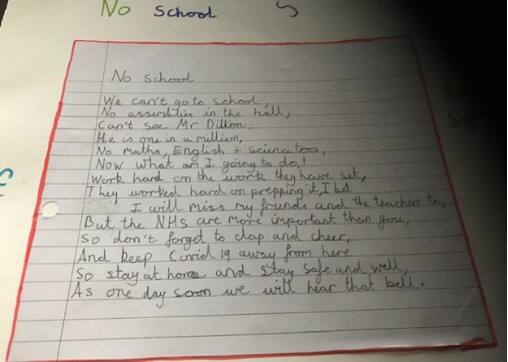 No School
No School
We can't go to school,
No assemblies in the hall,
Can't see Mr Dillon,
He is one in a million,
No maths, English + science too,
Now what am I going to do!
Work hard on the work they have set,
They worked hard on prepping it, I bet
I will miss my friends and the teachers to,
But the NHS are more important than you,
So don't forget to clap and cheer,
And keep Covid 19 away from here
So stay at home and stay safe and well,
As one day soon we will hear that bell.